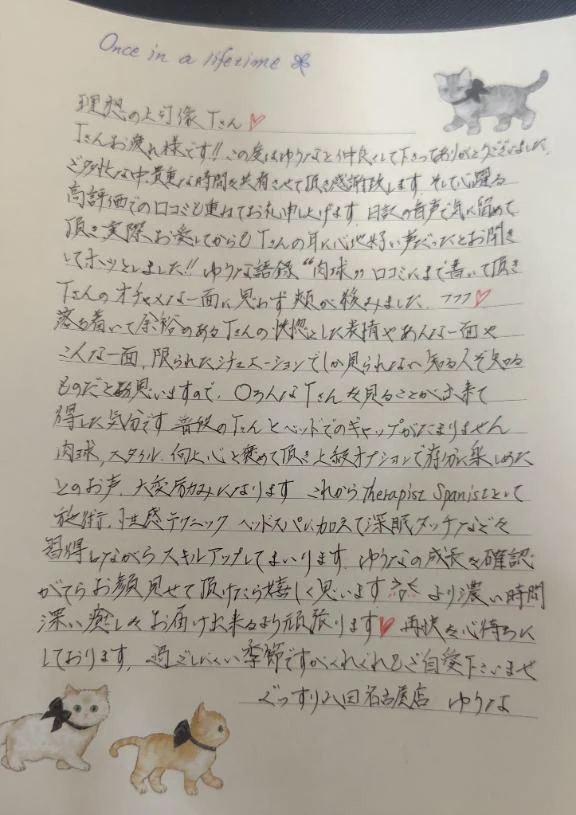 Once in a lifetime
理想の上司像 Tさん♡
Tさんお疲れ様です!! この度はゆうなと仲良くして下さってありがとうございました。
ご多忙な中貴重な時間を共有させて頂き感謝致します。そして心躍る
高評価での口コミも重ねてお礼申し上げます。日記の音声で気に留めて
頂き実際、お会してからも Tさんの耳に心地好い声だったとお聞き
してホッとしました!! ゆうな語録 "肉球" 口コミにまで書いて頂き
Tさんのオチャメな一面に思わず頬が緩みました。フフフ♡
落ち着いて余裕のあるTさんの恍惚とした表情やあんな一面や
こんな一面、限られたシチュエーションでしか見られない知る人ぞ知る
ものだと思いますので、〇ろんなTさんを見ることが出来て
得した気分です 普段のTさんとベッドでのギャップがたまりません
肉球、スタイル、何より心と褒めて頂き上級オプションで存分に楽しめた
とのお声、大変励みになります これから Therapist Spanistとして
施術、性感テクニック ヘッドスパに加えて深眠タッチなど々
習得しながらスキルアップしてまいります。ゆうなの成長を確認
がてらお顔見せて頂けたら嬉しく思います より濃い時間
深い癒しを お届け出来るより頑張ります♡ 再会を心待ちに
しております。過ごしにくい季節ですがくれぐれもご自愛下さいませ
ぐっすり八田名古屋店 ゆうな